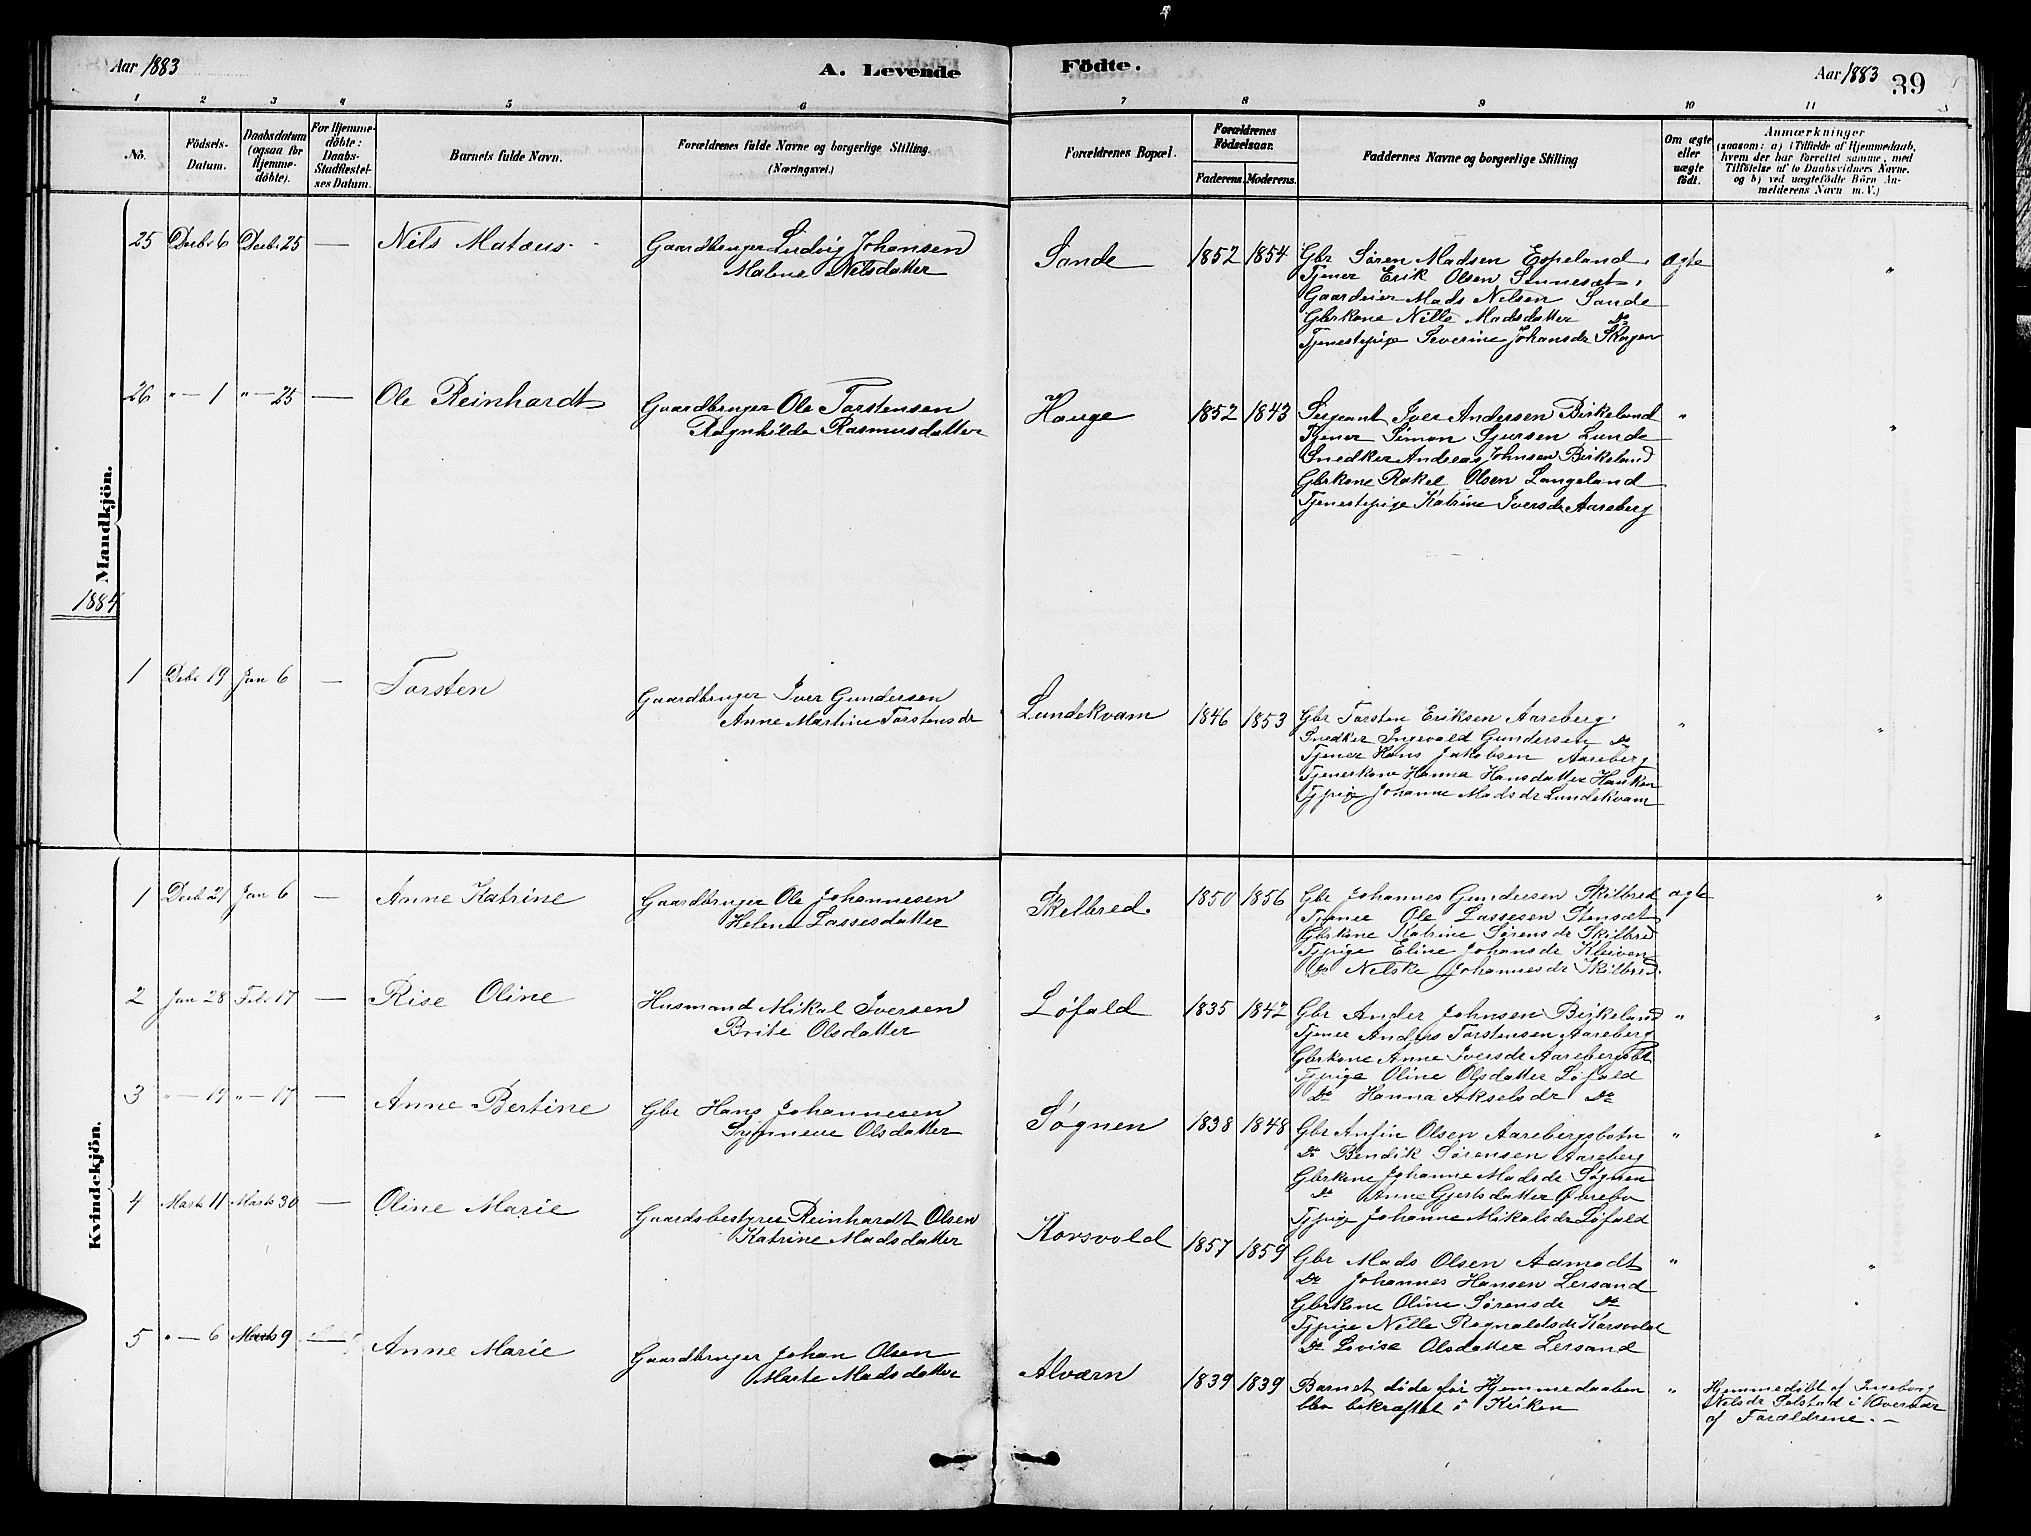 Aar 1883
A. Levende
Födte.
Aar 1883
39
1 2 3 4 5 6 7 8 9 10 11
No.
Födsels-
Datum.
Daabsdatum
(ogsaa for
Hjemme-
döbte).
For Hjemme-
döbte:
Daabs-
Stadfæstel-
ses Datum.
Barnets fulde Navn.
Forældrenes fulde Navne og borgerlige Stilling
(Næringsvei.)
Forældrenes Bopæl.
Forældrenes
Födselsaar.
Faderens. Moderens.
Faddernes Navne og borgerlige Stilling
Om ægte
eller
uægte
født.
Anmærkninger
(saasom: a) i Tilfælde af Hjemmedaab,
hvem der har forrettet samme, med
Tilføielse af to Daabsvidners Navne.
og b) ved uægtefödte Börn An-
melderens Navn m.V.)
Mandkjön.
25 Decbr 6 Decbr 25 — Nils Matæus
Gaardbruger Ludvig Johansen
Malene Nilsdatter
Sande 1852 1854
Gbr Sören Madsen Espeland
Tjener Erik Olsen
Gaardeier Mads Nilsen Sande
Gbrkone Nille Madsdatter Do
Tjenestepige Severine Johansdr Skogen
ægte "
26 " — 1 " — 25 — Ole Reinhardt
Gaardbruger Ole Torstensen
Ragnhilde Rasmusdatter
Hauge 1852 1843
Sergeant Iver Andersen Birkeland
Tjener Simon Sjursen Lunde
Snedker Andreas Johnsen Birkeland
Gbrkone Rakel Olsen Langeland
Tjenestepige Katrine Iversdr Aareberg
" "
1884
1 Debr 19 Jan 6 — Torsten
Gaardbruger Iver Gundersen
Anne Martine Torstensdr
Lundekvam 1846 1853
Gbr Torsten Eriksen Aareberg
Snedker Ingevald Gundersen Do
Tjener Hans Jakobsen Aareberg
Tjenerkone Hanna Hansdatter
Tjpige Johanne Madsdr Lundekvam
" "
Kvindekjön.
1 Decb 21 Jan 6 — Anne Katrine
Gaardbruger Ole Johannesen
Helene Lassesdatter
Skelbred 1850 1856
Gbr Johannes Gundersen Skilbred
Tjener Ole Lassesen Stensæt
Gbrkone Katrine Sørensdr Skilbred
Tjpige Eline Johansdr Kleiven
Do Nilske Johannesdr Skilbred
ægte "
2 Jan 28 Febr 17 — Rise Oline
Husmand Mikal Iversen
Brite Olsdatter
Løfald 1835 1842
Gbr Ander Johnsen Birkeland
Tjener Anders Torstensen Aareberg
Gbrkone Anne Iversdr Aarebergsbt
Tjpige Oline Olsdatter Løfald
Do Hanna Akselsdr Do
" "
3 " — 19 " — 17 — Anne Bertine
Gbr Hans Johannesen
Synneve Olsdatter
Søgnen 1838 1848
Gbr Anfin Olsen Aarebergsbotn
Do Bendik Sørensen Aareberg
Gbrkone Johanne Madsdr Søgnen
Do Anne Gjertsdatter Øvrebø
Tjpige Johanne Mikalsdr Løfald
" "
4 Marts 11 Marts 30 — Oline Marie
Gaardsbestyrer Reinhardt Olsen
Katrine Madsdatter
Korsvold 1857 1859
Gbr Mads Olsen Aamodt
Do Johannes Hansen Lersand
Gbrkone Oline Sørensdr Do
Tjpige Nille Ragnaldsdr Korsvold
Do Lovise Olsdatter Lersand
" "
5 " — 6 Marts 9 — Anne Marie
Gaardbruger Johan Olsen
Marte Madsdatter
Alværn 1839 1839
Barnet døde før Hjemmedaaben
blev bekræftet i Kirken
"
Hjemmedøbt af Ingeborg
Nilsdr Solstad i Overvær
af Forældrene. —